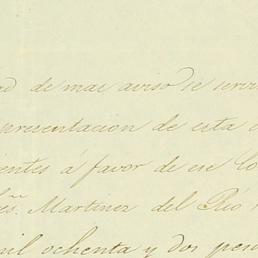 ad de mas aviso se servi
presentacion de esta
entes á favor de ese
es. Martinez del Rio
mil ochenta y dos pes